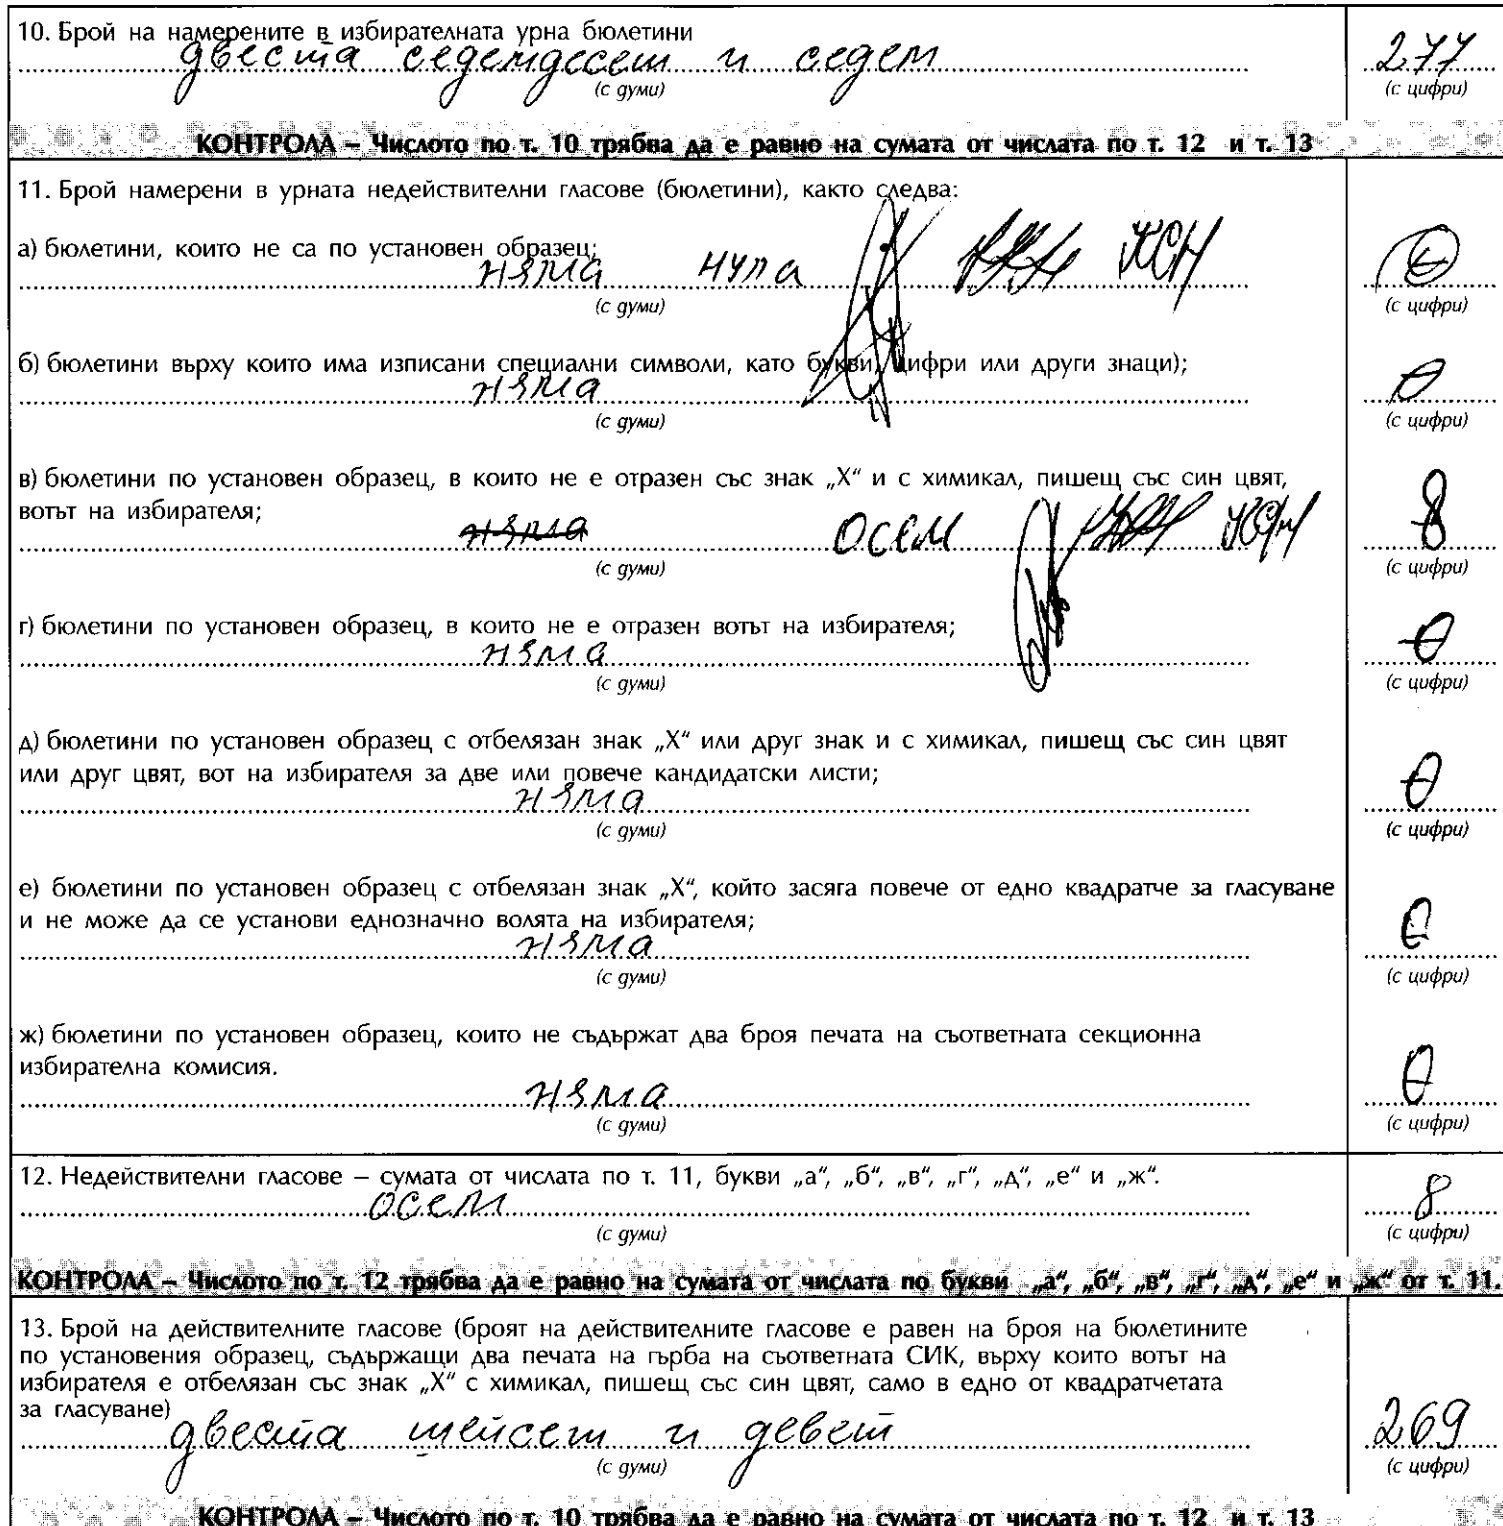 10. Брой на намерените в избирателната урна бюлетини
двеста седемдесет и седем 277
(с думи) (с цифри)
КОНТРОЛА – Числото по т. 10 трябва да е равно на сумата от числата по т. 12 и т. 13
11. Брой намерени в урната недействителни гласове (бюлетини), както следва:
а) бюлетини, които не са по установен образец;
няма нула 0
(с думи) (с цифри)
б) бюлетини върху които има изписани специални символи, като букви, цифри или други знаци);
няма 0
(с думи) (с цифри)
в) бюлетини по установен образец, в които не е отразен със знак „X“ и с химикал, пишещ със син цвят,
вотът на избирателя;
няма осем 8
(с думи) (с цифри)
г) бюлетини по установен образец, в които не е отразен вотът на избирателя;
няма 0
(с думи) (с цифри)
д) бюлетини по установен образец с отбелязан знак „X“ или друг знак и с химикал, пишещ със син цвят
или друг цвят, вот на избирателя за две или повече кандидатски листи;
няма 0
(с думи) (с цифри)
е) бюлетини по установен образец с отбелязан знак „X“, който засяга повече от едно квадратче за гласуване
и не може да се установи еднозначно волята на избирателя;
няма 0
(с думи) (с цифри)
ж) бюлетини по установен образец, които не съдържат два броя печата на съответната секционна
избирателна комисия.
няма 0
(с думи) (с цифри)
12. Недействителни гласове – сумата от числата по т. 11, букви „а“, „б“, „в“, „г“, „д“, „е“ и „ж“.
осем 8
(с думи) (с цифри)
КОНТРОЛА – Числото по т. 12 трябва да е равно на сумата от числата по букви „а“, „б“, „в“, „г“, „д“, „е“ и „ж“ от т. 11.
13. Брой на действителните гласове (броят на действителните гласове е равен на броя на бюлетините
по установения образец, съдържащи два печата на гърба на съответната СИК, върху които вотът на
избирателя е отбелязан със знак „X“ с химикал, пишещ със син цвят, само в едно от квадратчетата
за гласуване)
двеста шейсет и девет 269
(с думи) (с цифри)
КОНТРОЛА – Числото по т. 10 трябва да е равно на сумата от числата по т. 12 и т. 13